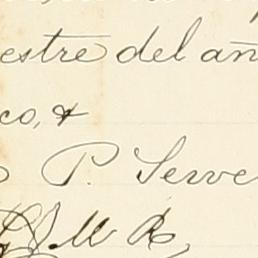 estre del añ
co, &
P. Serve
M R